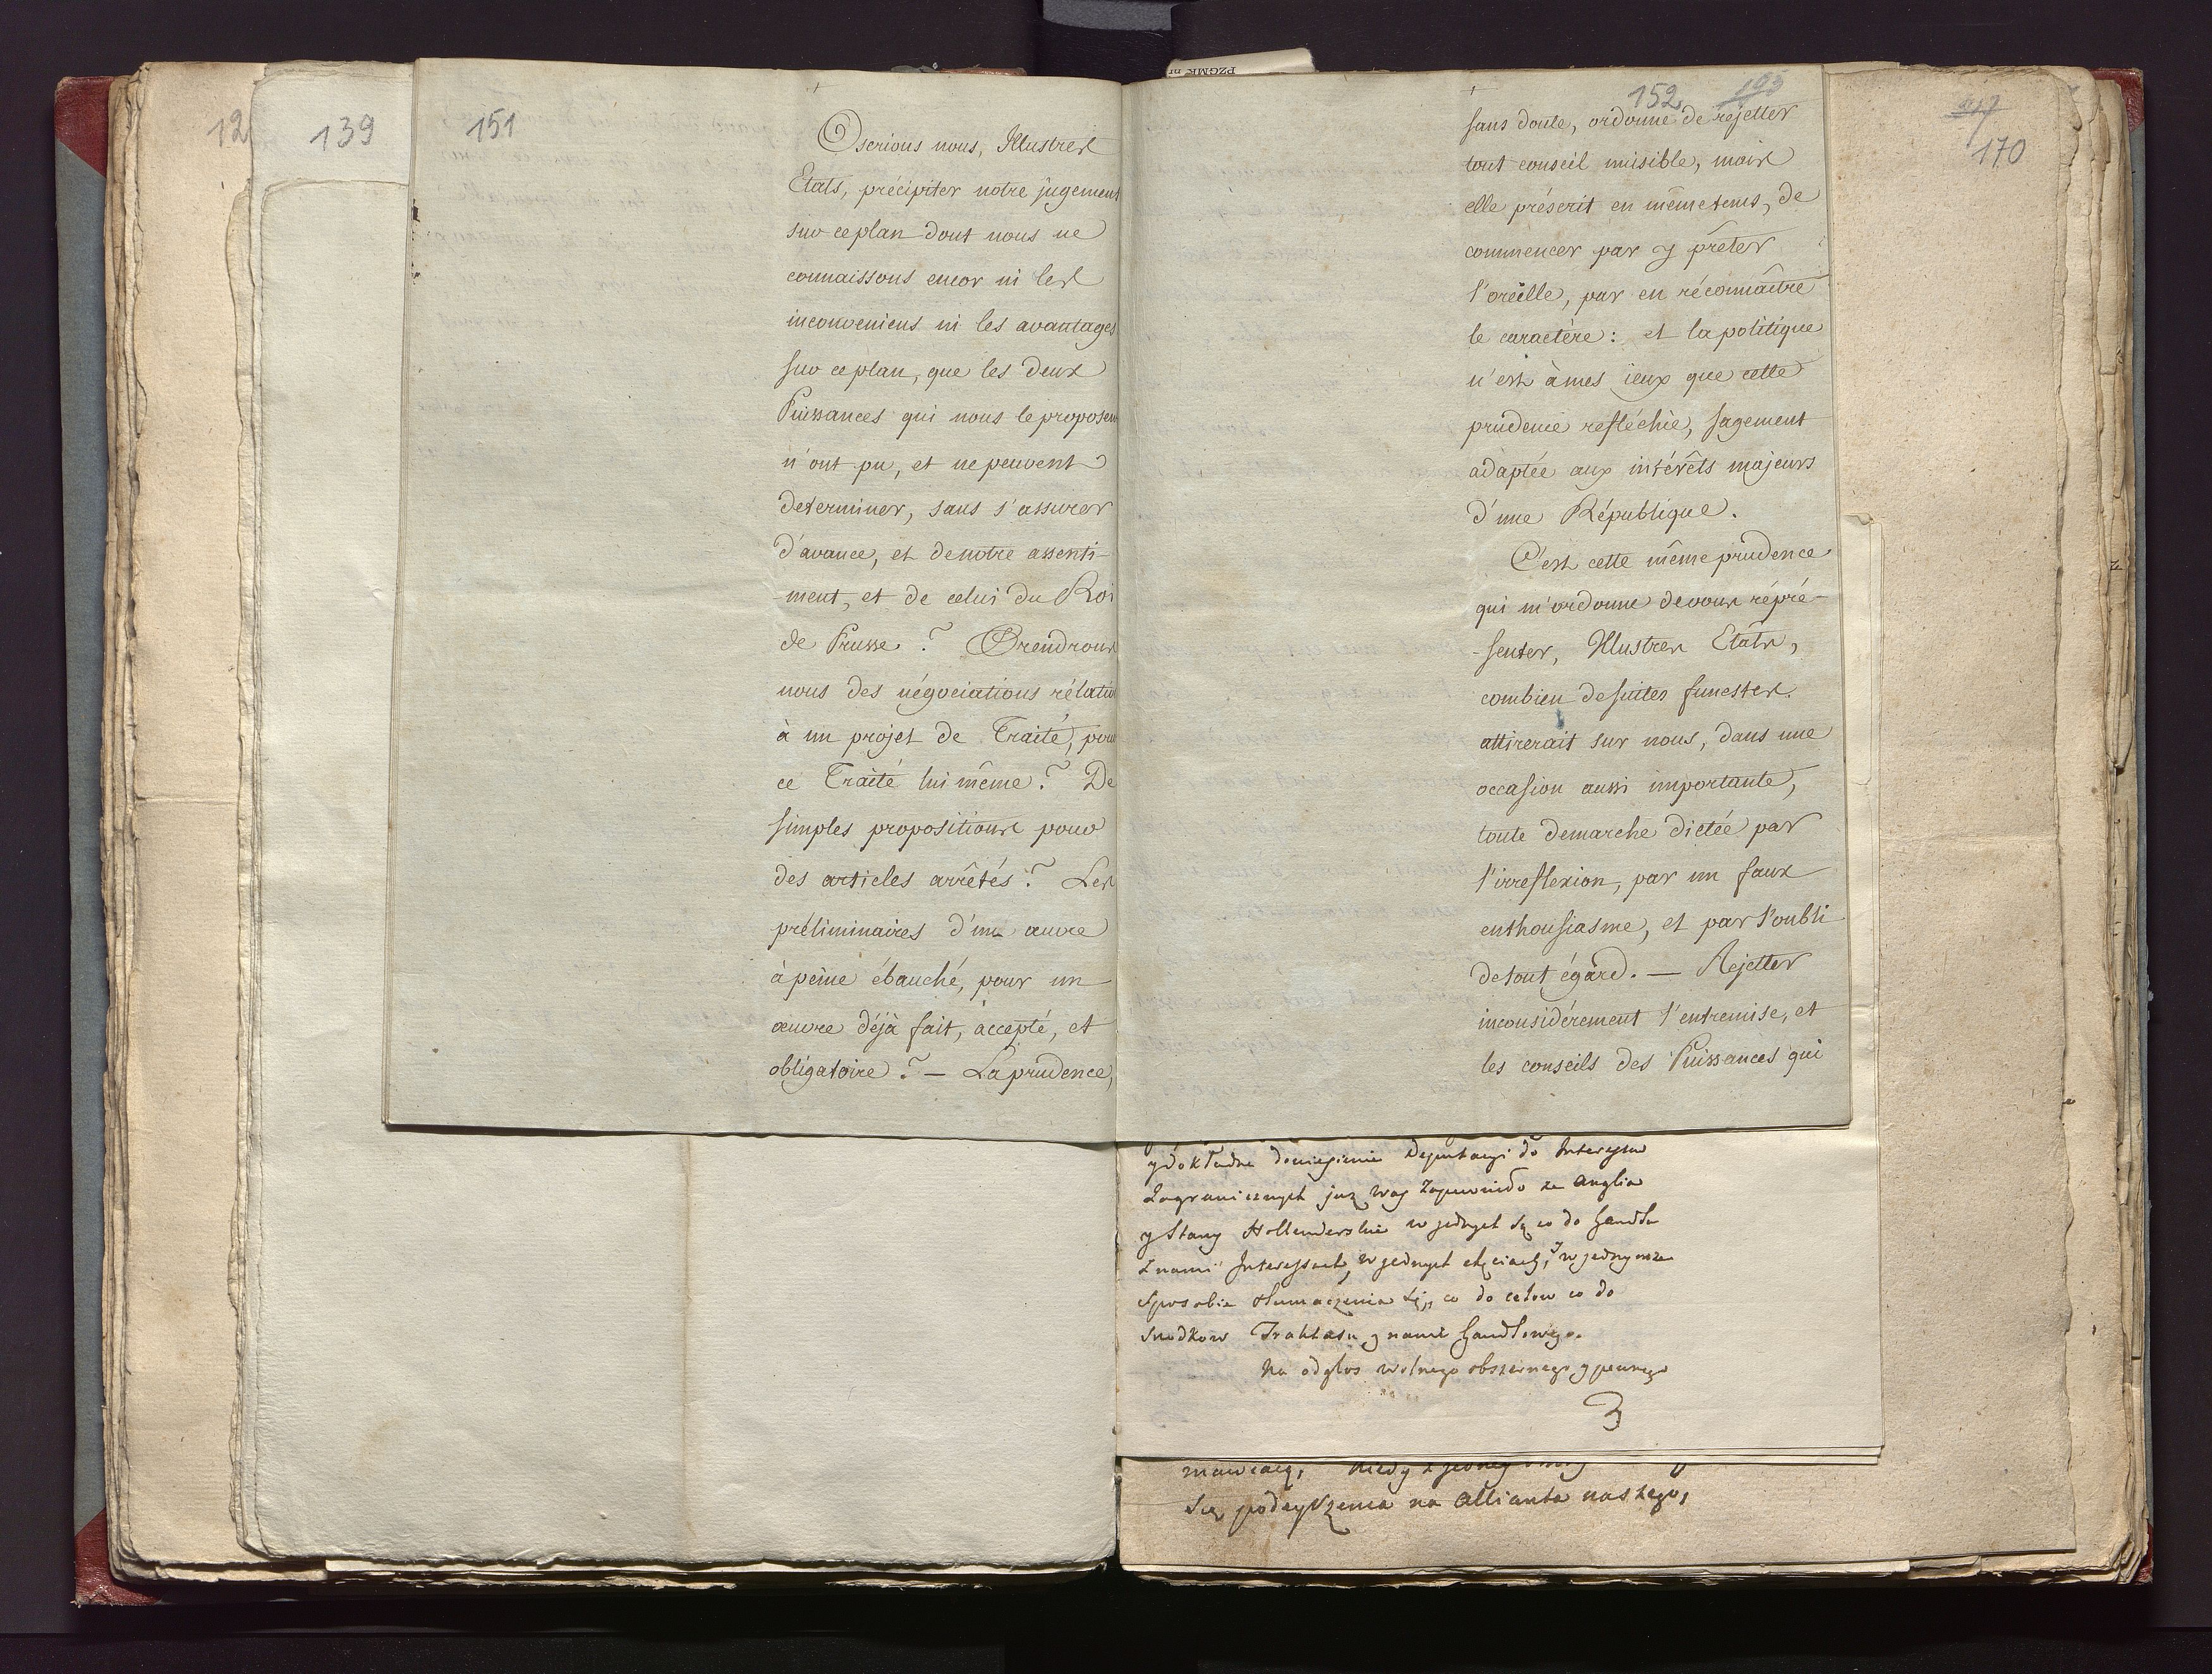 12
139
151
Oserions nous, Illustres
Etats, précipiter notre jugement
sur ce plan dont nous ne
connaissons encor ni les
inconveniens ni les avantages
sur ce plan, que les deux
Puissances qui nous le proposent
n'ont pu, et ne peuvent
determiner, sans s'assurer
d'avance, et de notre assenti-
-ment, et de celui du Roi
de Prusse? Prendrons
nous des négociations rélatives
à un projet de Traité, pour
ce Traité lui même? De
simples propositions pour
des articles arrêtés? Les
préliminaires d'une œuvre
à peine ébauché, pour un
œuvre déjà fait, accepté, et
obligatoire? — La prudence,
152 193
sans doute, ordonne de réjetter
tout conseil nuisible, mais
elle préscrit en mêmetems, de
commencer par y prêter
l'oreille, par en réconnaître
le caractère: et la politique
n'est à mes ieux que cette
prudence refléchie, sagement
adaptée aux intérêts majeurs
d'une République.
C'est cette même prudence
qui m'ordonne de vous répré-
-senter, Illustres Etats,
combien de suites funestes
attirerait sur nous, dans une
occasion aussi importante,
toute demarche dictée par
l'irreflexion, par un faux
enthousiasme, et par l'oubli
de tout égard. — Rejetter
inconsidérement l'entremise, et
les conseils des Puissances qui
170
y dokładne doniesienie Deputacyi do Interesów
Zagranicznych już was zapewniło ze Anglia
y Stany Hollenderskie w jednych są co do handlu
z nami Interessach, w jednych chęciach, y w jednymże
sposobie tłumaczenia się, co do celow co do
srodkow Traktatu z nami handlowego.
Na odgłos wolnego obszernego y pewnego
3
mawiają, kiedy z jedney
się podwyższenia na Allianta naszego,